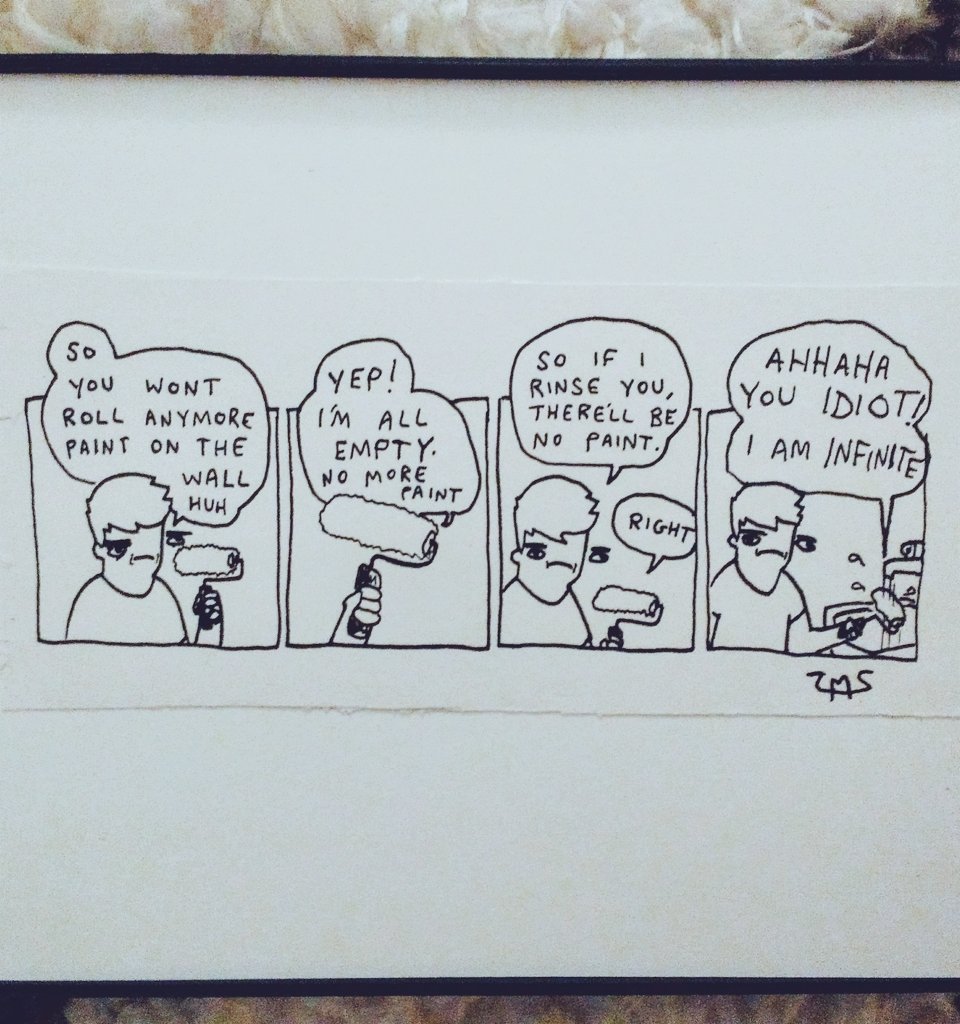 SO
YOU WONT
ROLL ANYMORE
PAINT ON THE
WALL
HUH
YEP!
I'M ALL
EMPTY.
NO MORE
PAINT
SO IF I
RINSE YOU,
THERE'LL BE
NO PAINT.
RIGHT
AHHAHA
YOU IDIOT!
I AM INFINITE
ZMS